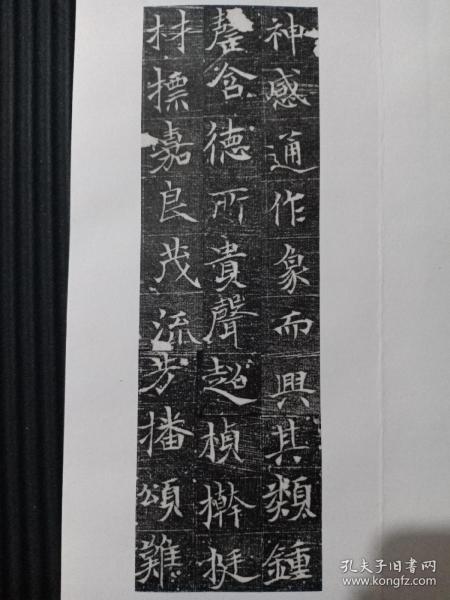 神感通作象而興其類鍾
含德所貴聲超楨榦挺
材標嘉良茂流芳播頌難
孔夫子旧书网
www.kongfz.com